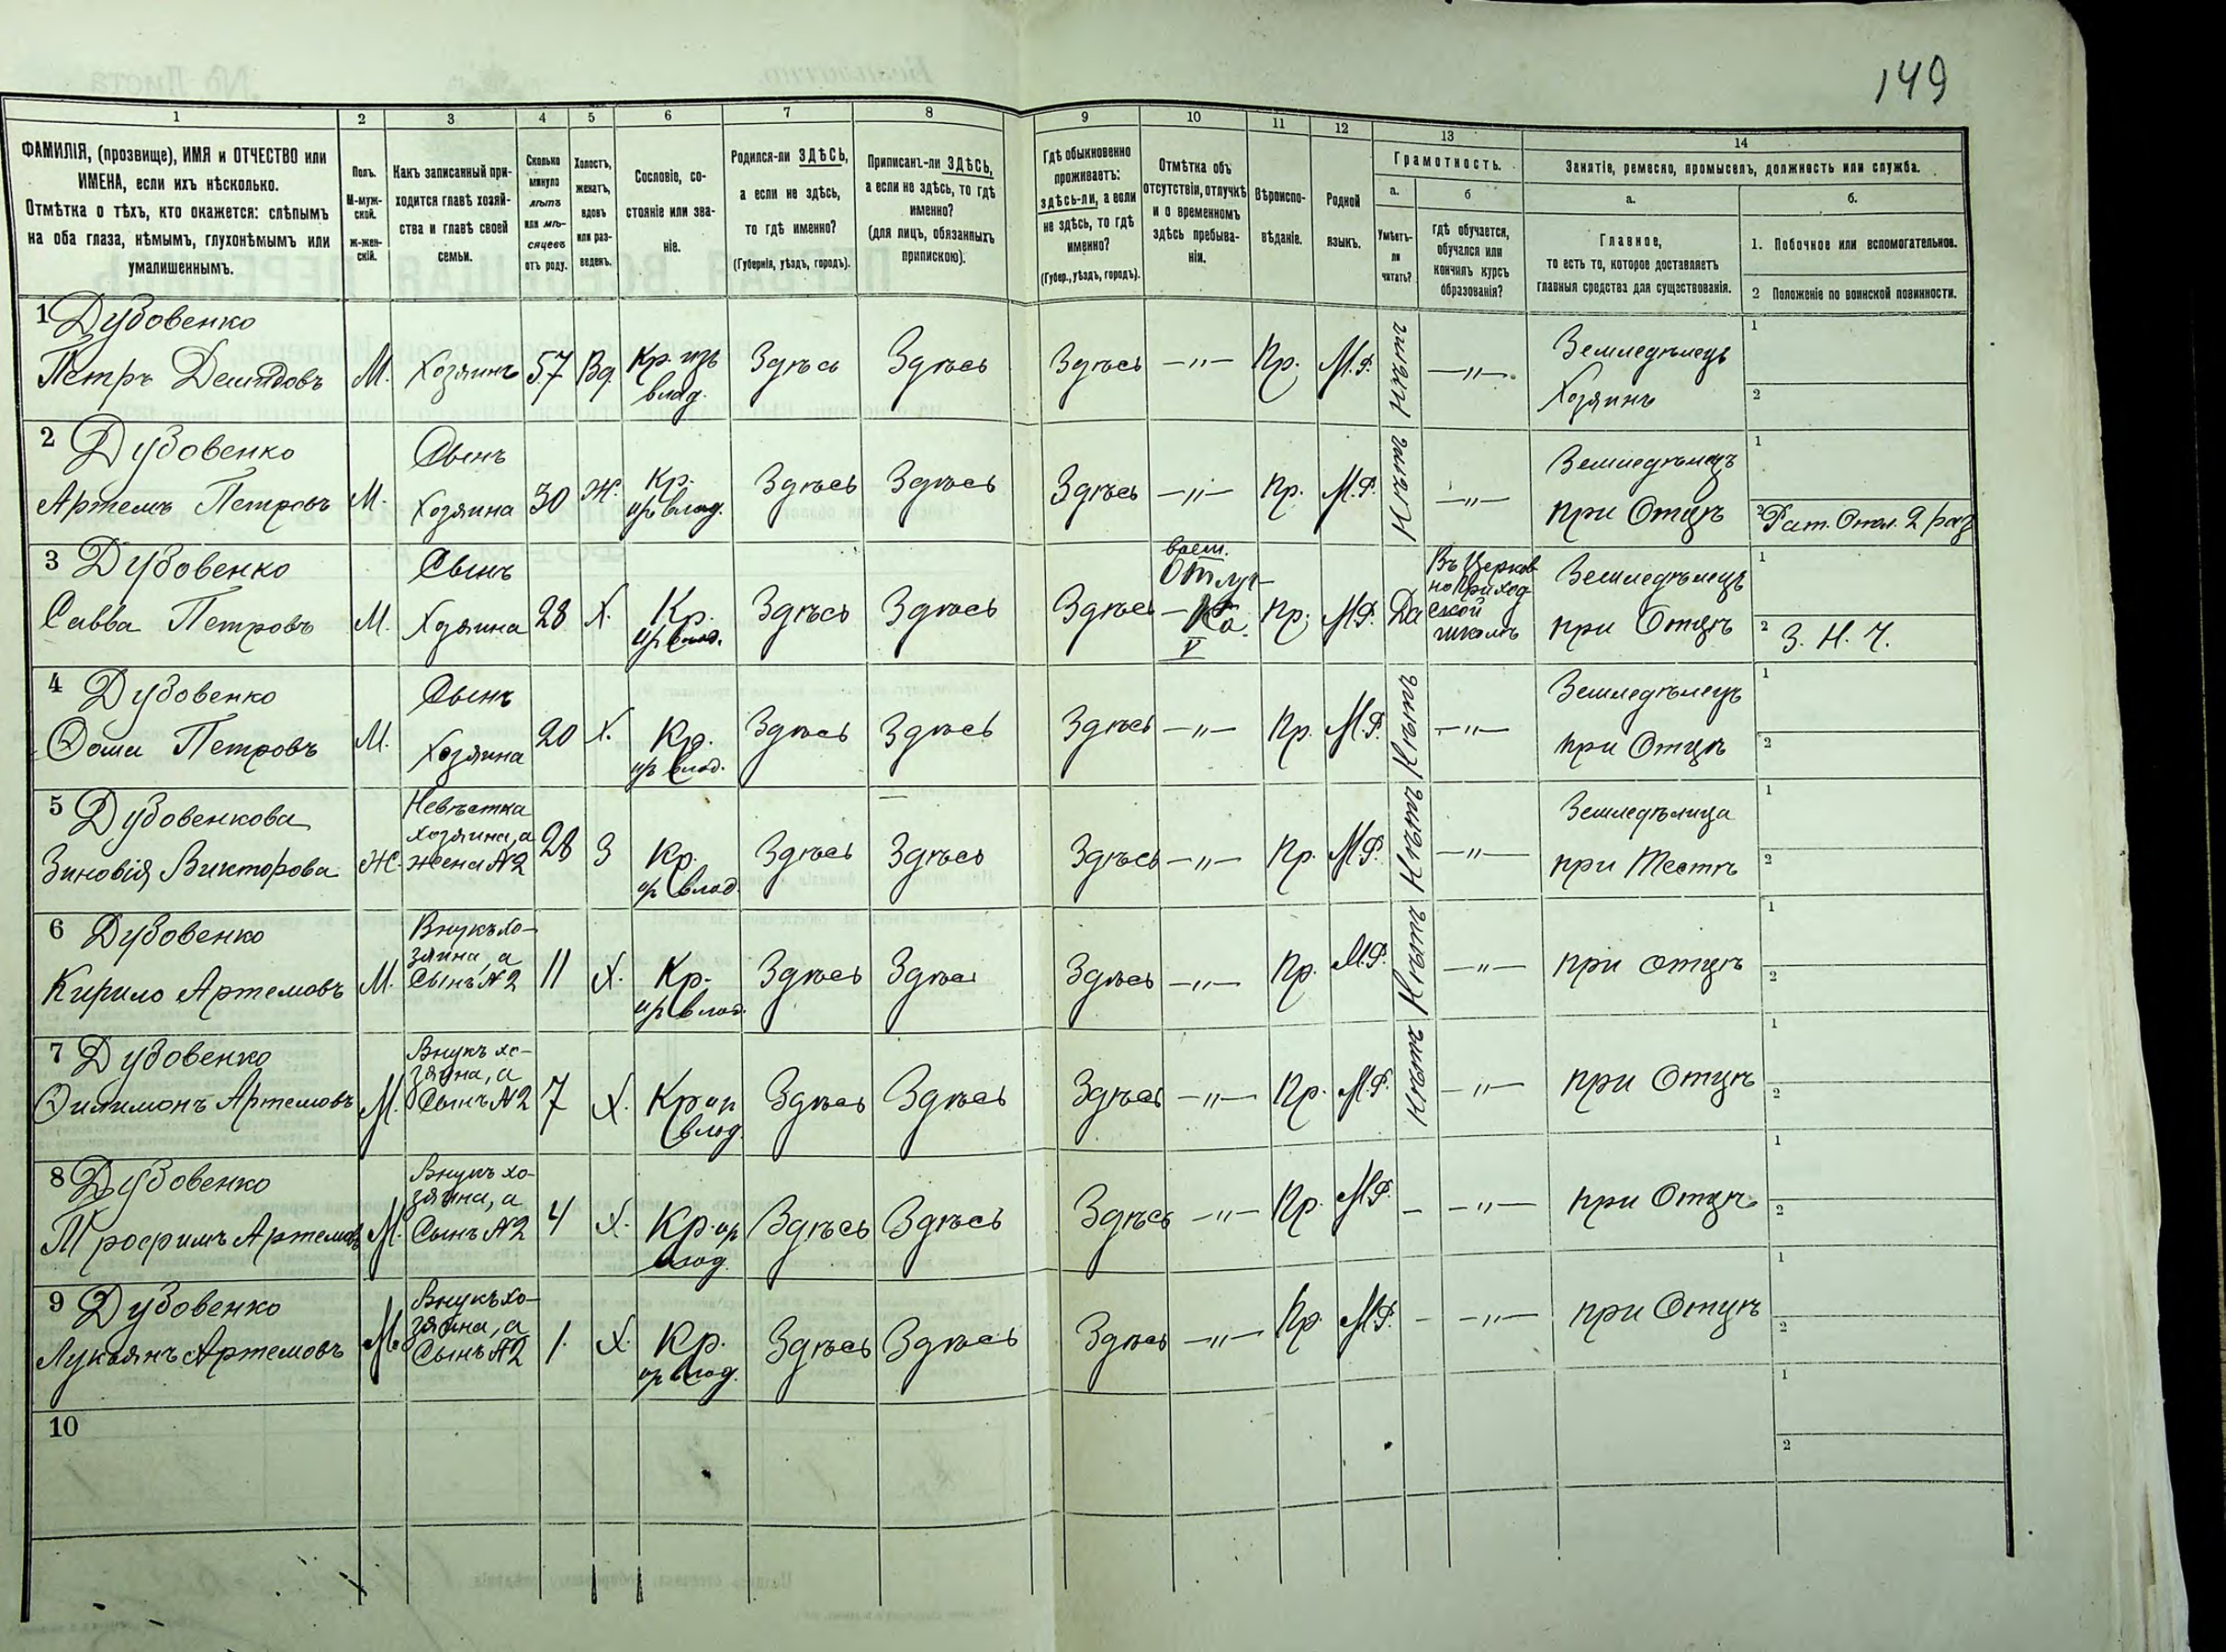 149
1 2 3 4 5 6 7 8 9 10 11 12 13 14
ФАМИЛІЯ, (прозвище), ИМЯ и ОТЧЕСТВО или
ИМЕНА, если ихъ нѣсколько.
Отмѣтка о тѣхъ, кто окажется: слѣпымъ
на оба глаза, нѣмымъ, глухонѣмымъ или
умалишеннымъ.
Полъ.
М-муж-
ской.
ж-жен-
скій.
Какъ записанный при-
ходится главѣ хозяй-
ства и главѣ своей
семьи.
Сколько
минуло
лѣтъ
или мѣ-
сяцевъ
отъ роду.
Холостъ,
женатъ,
вдовъ
или раз-
веденъ.
Сословіе, со-
стояніе или зва-
ніе.
Родился-ли ЗДѢСЬ,
а если не здѣсь,
то гдѣ именно?
(Губернія, уѣздъ, городъ).
Приписанъ-ли ЗДѢСЬ,
а если не здѣсь, то гдѣ
именно?
(для лицъ, обязанныхъ
припискою).
Гдѣ обыкновенно
проживаетъ:
здѣсь-ли, а если
не здѣсь, то гдѣ
именно?
(Губер., уѣздъ, городъ).
Отмѣтка объ
отсутствіи, отлучкѣ
и о временномъ
здѣсь пребыва-
ніи.
Вѣроиспо-
вѣданіе.
Родной
языкъ.
Грамотность.
а.
Умѣетъ-
ли
читать?
б
гдѣ обучается,
обучался или
кончилъ курсъ
образованія?
Занятіе, ремесло, промыселъ, должность или служба.
а.
Главное,
то есть то, которое доставляетъ
главныя средства для существованія.
б.
1. Побочное или вспомогательное.
2 Положеніе по воинской повинности.
1 Дубовенко
Петръ Демидовъ М. Хозяинъ 57 Вд. Кр. изъ
влад. Здѣсь Здѣсь Здѣсь —„— Пр. М.Р. Нѣтъ —„— Земледѣлецъ
Хозяинъ
1
2
2 Дубовенко
Артемъ Петровъ М. Сынъ
Хозяина 30 Ж. Кр.
из влад. Здѣсь Здѣсь Здѣсь —„— Пр. М.Р. Нѣтъ —„— Земледѣлецъ
при Отцѣ
1
2 Рат. Опол. 2 раз
3 Дубовенко
Савва Петровъ М. Сынъ
Хозяина 28 Х. Кр.
из влад. Здѣсь Здѣсь Здѣсь врем.
Отлуч-
ка. V Пр. М.Р. Да Въ Церков
но Приход
ской
школѣ Земледѣлецъ
при Отцѣ
1
2 З. Н. Ч.
4 Дубовенко
Ѳома Петровъ М. Сынъ
Хозяина 20 Х. Кр.
из влад. Здѣсь Здѣсь Здѣсь —„— Пр. М.Р. Нѣтъ —„— Земледѣлецъ
при Отцѣ
1
2
5 Дубовенкова
Зиновія Викторова Ж. Невѣстка
хозяина, а
жена №2 28 З Кр.
из влад. Здѣсь Здѣсь Здѣсь —„— Пр. М.Р. Нѣтъ —„— Земледѣлица
при Тестѣ
1
2
6 Дубовенко
Кирило Артемовъ М. Внукъ хо-
зяина, а
Сынъ №2 11 Х. Кр.
из влад. Здѣсь Здѣсь Здѣсь —„— Пр. М.Р. Нѣтъ —„— при отцѣ
1
2
7 Дубовенко
Филимонъ Артемовъ М. Внукъ хо-
зяина, а
Сынъ №2 7 Х. Кр из
влад. Здѣсь Здѣсь Здѣсь —„— Пр. М.Р. Нѣтъ —„— при Отцѣ
1
2
8 Дубовенко
Трофимъ Артемовъ М. Внукъ хо-
зяина, а
Сынъ №2 4 Х. Кр. из
влад. Здѣсь Здѣсь Здѣсь —„— Пр. М.Р. – —„— при Отцѣ
1
2
9 Дубовенко
Лукьянъ Артемовъ М. Внукъ хо-
зяина, а
Сынъ №2 1. Х. Кр.
из влад. Здѣсь Здѣсь Здѣсь —„— Пр. М.Р. – —„— при Отцѣ
1
2
10
1
2